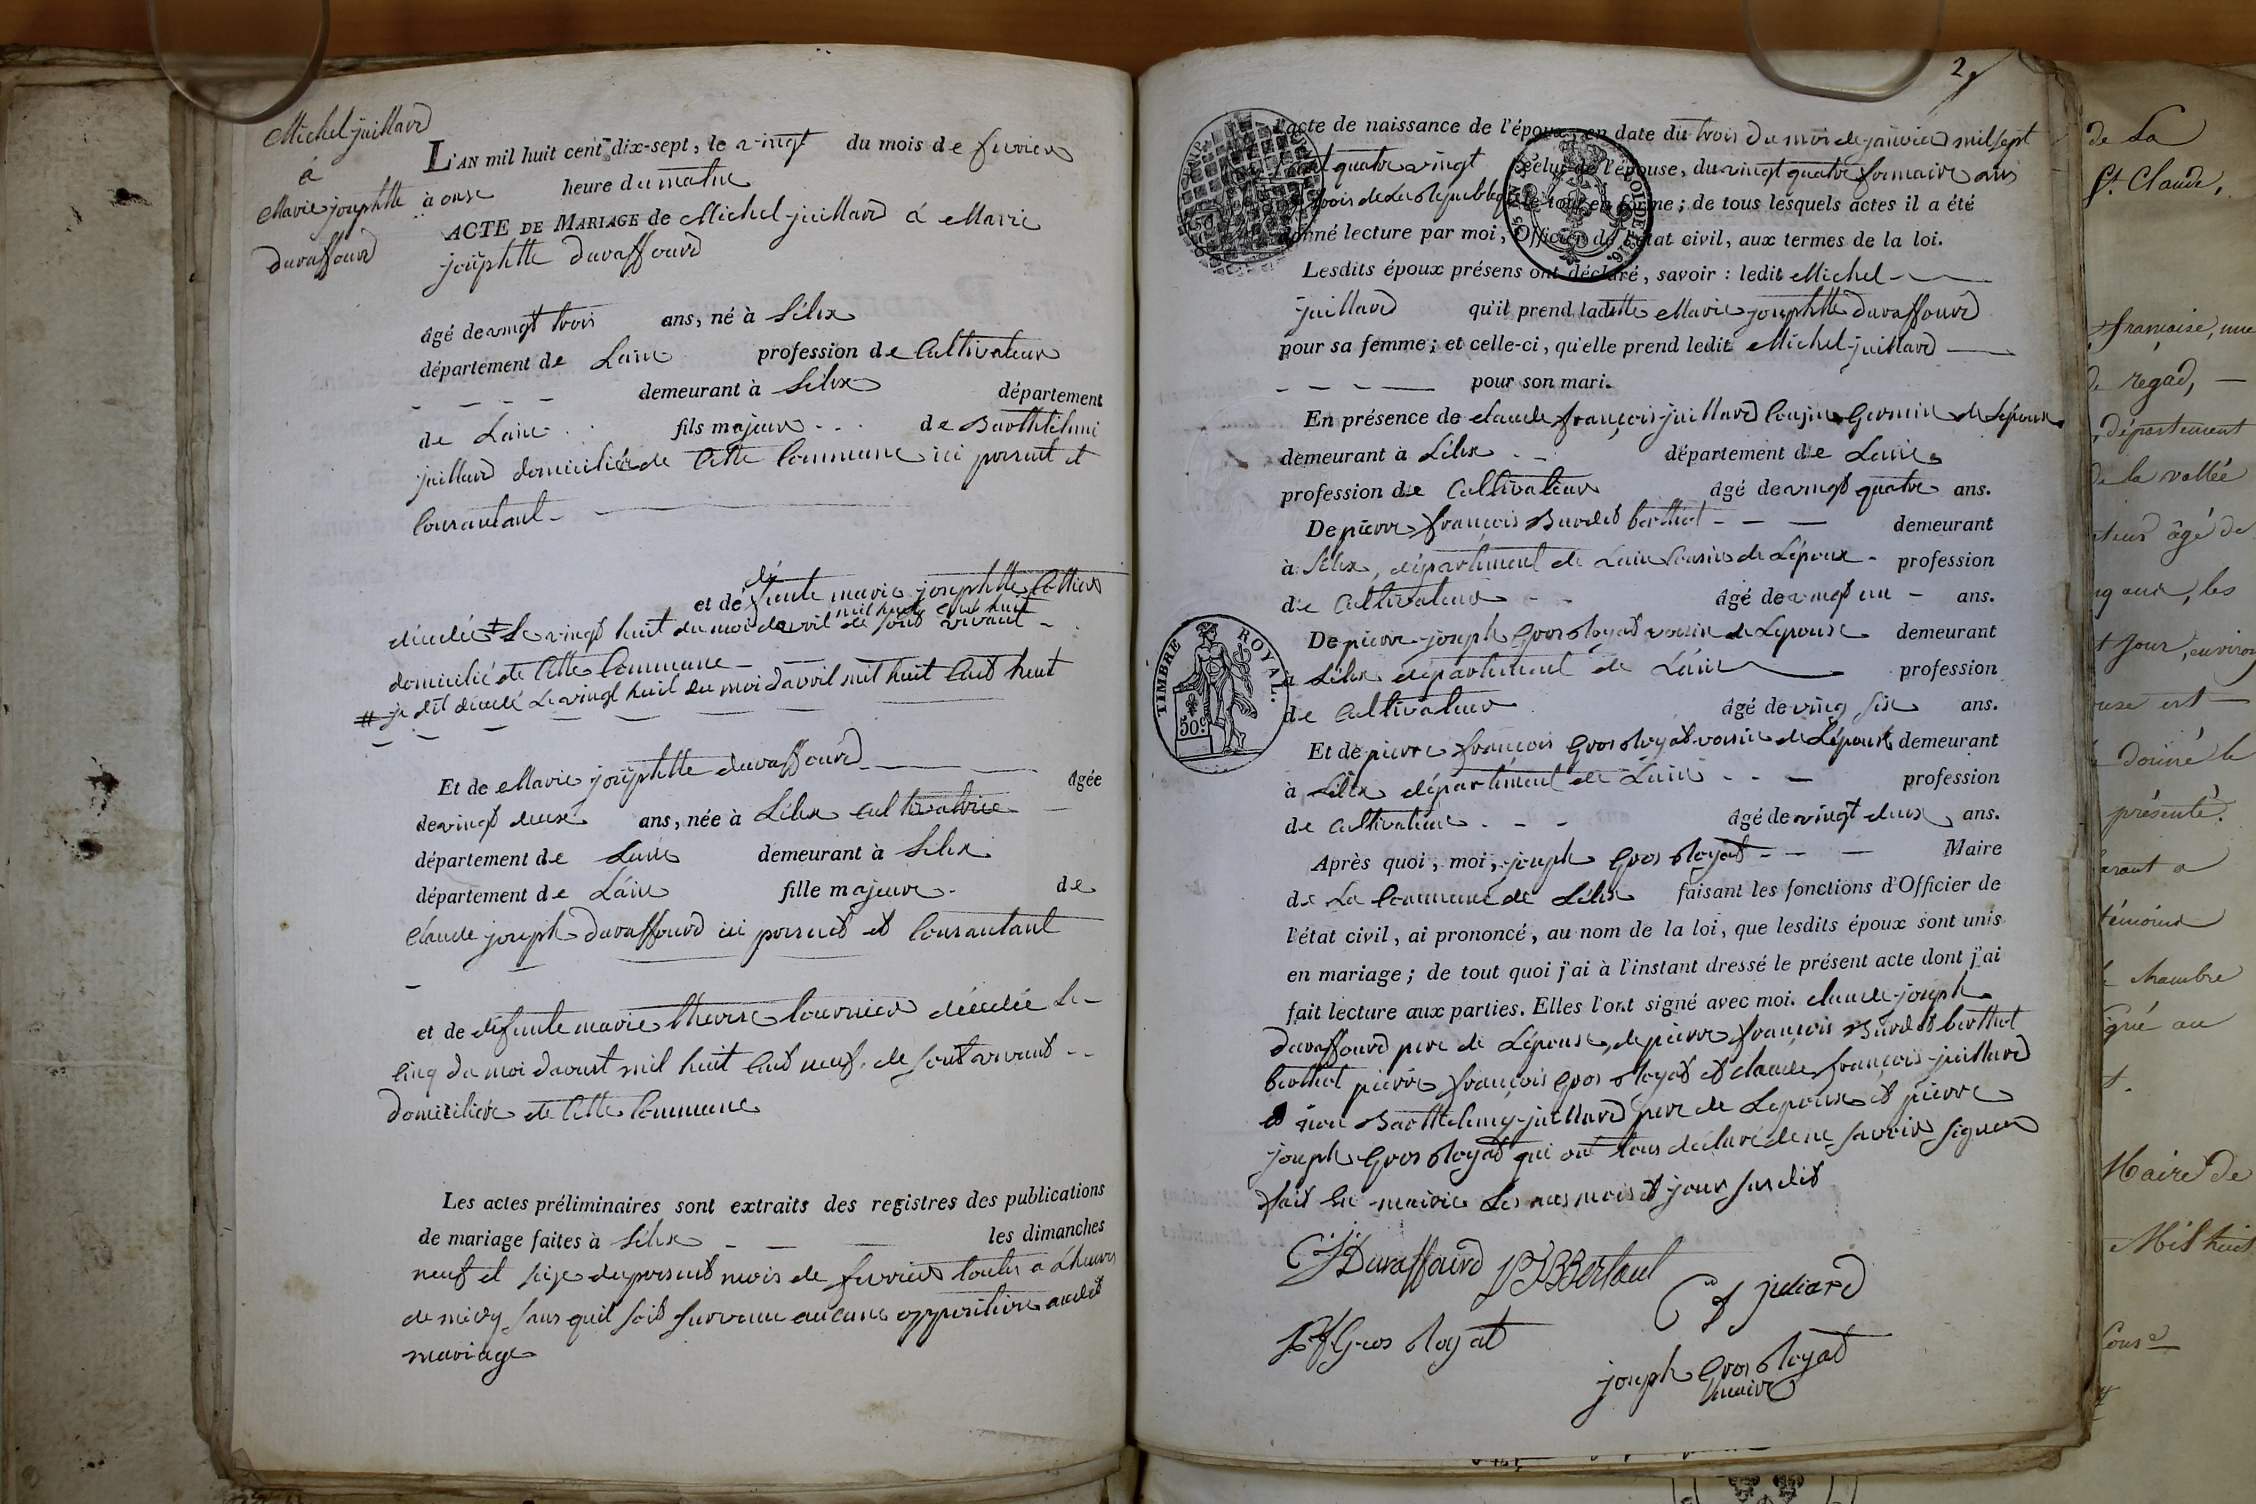 Michel juillard
à
Marie josephtte
duraffourd
L'AN mil huit cent dix-sept, le vingt du mois de fevrier
à onse heure du matin
ACTE DE MARIAGE de Michel juillard á Marie
josephtte duraffourd
âgé de vingt trois ans, né à Lélex
département de Lain profession de Cultivateur
demeurant à Lélex département
de Lain fils majeur de Barthélemi
juillard domicilié de Cette Commune ici present et
Consentant
et de défunte marie josephtte
décedée le vingt huit du moi davril mil huit cent huit de sont vivant
domicilié de Cette Commune
# je dit décedé Le vingt huit du moi davril mil huit Cent huit
Et de Marie josephtte duraffourd âgée
de vingt deux ans, née à Lélex Cultivatrice
département de Lain demeurant à Lélex
département de Láin fille majeure de
Claude joseph duraffourd ici present et Consantant
et de défunte marie therese tournier décedée Le
Cinq du moi daoust mil huit Cent neuf, de sont vivant
domicilière de Cette Commune
Les actes préliminaires sont extraits des registres des publications
de mariage faites à Lélex les dimanches
neuf et seize du present mois de fevrier toutes a Lheures
de midy sans quil soit survenu aucune opposition audit
mariage
2
l'acte de naissance de l'époux, en date du trois du moi de janvier mil sept
cent quatre vingt Celui de l'épouse, du vingt quatre frimaire ans
trois de la Republique le tout en forme; de tous lesquels actes il a été
donné lecture par moi, Officier de l'état civil, aux termes de la loi.
Lesdits époux présens ont déclaré, savoir : ledit Michel
juillard qu'il prend ladite Marie josephtte duraffourd
pour sa femme; et celle-ci, qu'elle prend ledit Michel juillard
pour son mari.
En présence de claude françois juillard Cousin Germin de Lepoux
demeurant à Lélex département de Lain
profession de Cultivateur âgé de vingt quatre ans.
De pierre françois Burdet berthet demeurant
à Lélex, département de Lain Cousin de Lépoux profession
de Cultivateur âgé de vingt un ans.
De pierre joseph Grosgoyat voisin de Lepouse demeurant
à Lélex département de Láin profession
de Cultivateur âgé de ving six ans.
Et de pierre françois Grosgoyat voisin de Lépouse demeurant
à Lélex département de Láin profession
de Cultivateur âgé de vingt deux ans.
Après quoi, moi, joseph Grosgoyat Maire
de La Commune de Lélex faisant les fonctions d'Officier de
l'état civil, ai prononcé, au nom de la loi, que lesdits époux sont unis
en mariage; de tout quoi j'ai à l'instant dressé le présent acte dont j'ai
fait lecture aux parties. Elles l'ont signé avec moi. claude joseph
duraffourd pere de Lépouse, de pierre françois Burdet berthet
berthet pierre françois Grosgoyat et claude françois juillard
et non Barthelemy juillard pere de Lepoux et pierre
joseph Grosgoyat qui ont tous déclaré de ne savoir signer
fait En mairie Les ans mois et jour susdit
CJ Duraffourd
C f juliard
P f Grosgoyat
joseph Grosgoyat
maire
TIMBRE ROYAL.
50c
1816.
de La
St. Claude,
française, une
de regad,
département
de la vallée
âgé de
ans, les
jour, environ
est
donné le
présenté.
témoins
chambre
Maire de
Mil huit